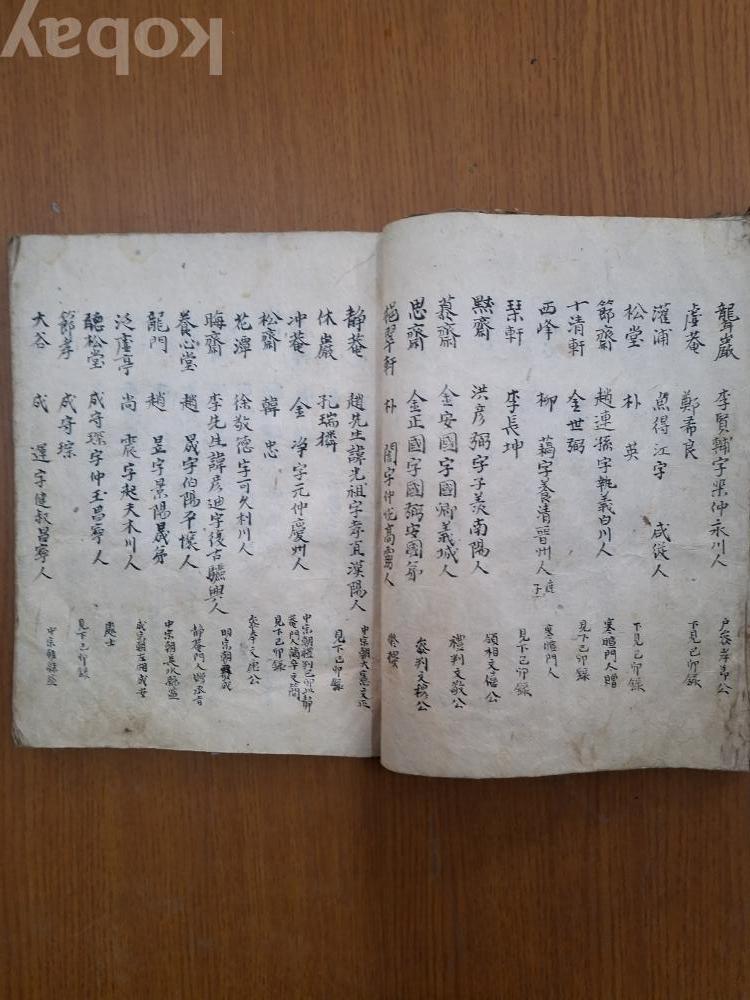 kobay
聾巖 李賢輔字棐仲永川人 戶參孝節公
虛菴 鄭希良 下見己卯錄
灌浦 魚得江字 咸從人
松堂 朴英 下見己卯錄
節齋 趙連孫字執義白川人 寒暄門人贈
十清軒 金世弼 見下己卯錄
西峰 柳藕字養清晋州人 寒暄門人
琴軒 李長坤 見下己卯錄
默齋 洪彦弼字子美南陽人 領相文僖公
慕齋 金安國字國卿義城人 禮判文敬公
思齋 金正國字國弼安國弟 參判文穆公
挹翠軒 朴誾字仲悅高靈人
静菴 趙先生諱光祖字孝直漢陽人 中宗朝大憲文正
休巖 孔瑞麟 見下己卯錄
冲菴 金净字元仲慶州人 中宗朝禮判己卯
松齋 韓忠 見下己卯錄
花潭 徐敬德字可久利川人 參奉文康公
晦齋 李先生諱彦迪字復古驪興人 明宗朝
養心堂 趙晟字伯陽平壤人 静菴門人
龍門 趙昱字景陽晟弟 中宗朝長水縣監
泛虛亭 尚震字起夫木川人 成安
聽松堂 成守琛字仲玉昌寧人 處士
節孝 成守琮 見下己卯錄
大谷 成運字健叔昌寧人 中宗